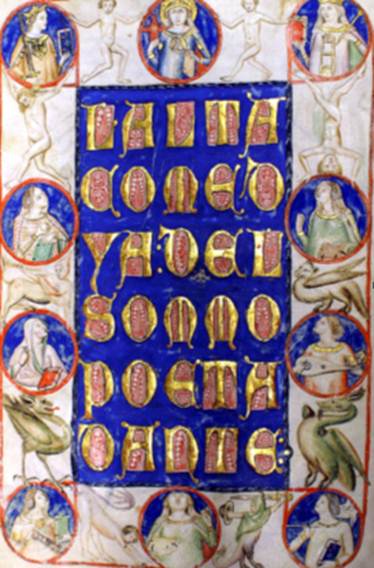 LALTA
COMED
YA·DEL
SOMMO
POETA
DANTE: